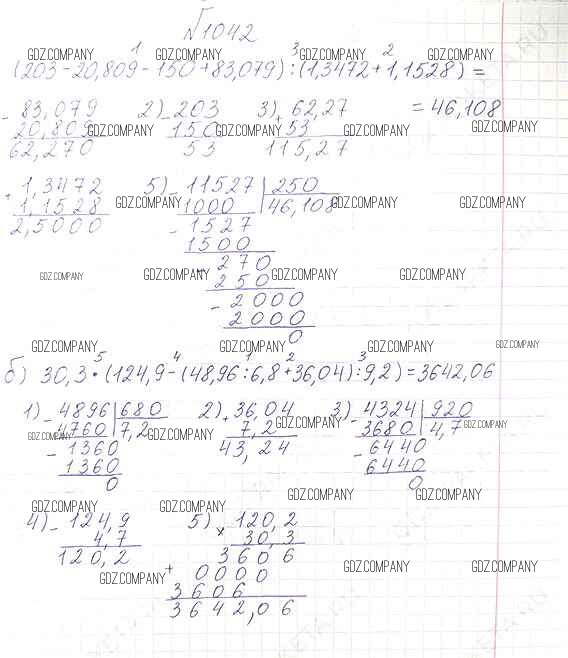 №1042
GDZ.COMPANY 1 GDZ.COMPANY 3 GDZ.COMPANY 2 GDZ.COMPANY
(203-20,809-150+83,079):(1,3472+1,1528)=
= 46,108
- 83,079
20,809
62,270
2) - 203
150
53
3) + 62,27
53
115,27
GDZ.COMPANY GDZ.COMPANY GDZ.COMPANY GDZ.COMPANY
+ 1,3472
1,1528
2,5000
5) - 11527 | 250
1000 | 46,108
- 1527
1500
- 270
250
- 2000
2000
0
GDZ.COMPANY GDZ.COMPANY GDZ.COMPANY
GDZ.COMPANY GDZ.COMPANY GDZ.COMPANY
GDZ.COMPANY GDZ.COMPANY GDZ.COMPANY GDZ.COMPANY
5 4 1 2 3
б) 30,3•(124,9-(48,96:6,8+36,04):9,2)=3642,06
1) - 4896 | 680
4760 | 7,2
- 1360
1360
0
2) + 36,04
7,2
43,24
3) - 4324 | 920
3680 | 4,7
- 6440
6440
0
GDZ.COMPANY GDZ.COMPANY GDZ.COMPANY GDZ.COMPANY GDZ.COMPANY
GDZ.COMPANY GDZ.COMPANY
GDZ.COMPANY GDZ.COMPANY
4) - 124,9
4,7
120,2
5) × 120,2
30,3
3606
+ 0000
3606
3642,06
GDZ.COMPANY GDZ.COMPANY GDZ.COMPANY